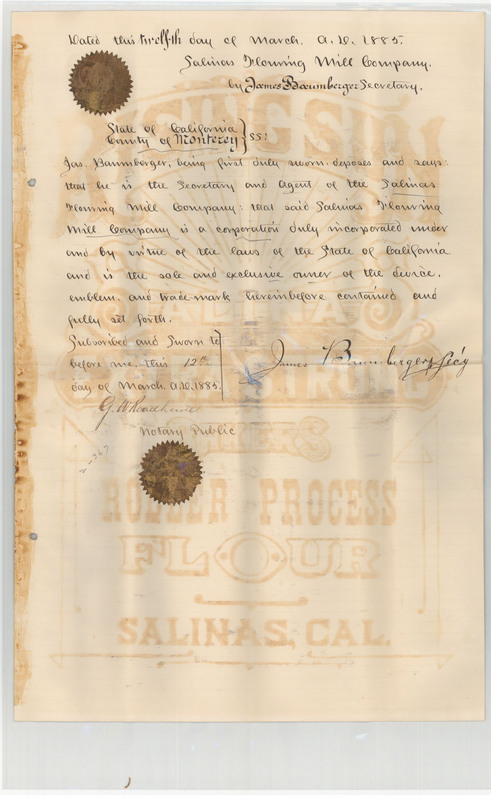 Dated this twelfth day of March. A.D. 1885.
Salinas Flouring Mill Company.
by James Bannberger Secretary.
State of California
County of Monterey } SS:
Jas. Bannberger, being first duly sworn, deposes and says:
that he is the Secretary and Agent of the Salinas
Flouring Mill Company: that said Salinas Flouring
Mill Company is a corporation duly incorporated under
and by virtue of the laws of the State of California
and is the sole and exclusive owner of the device,
emblem, and trade-mark hereinbefore contained and
fully set forth.
Subscribed and Sworn to
before me, this 12th
day of March, A.D. 1885.
James Bannberger Sec'y
G. W.
Notary Public
ROLLER PROCESS
FLOUR
SALINAS, CAL.